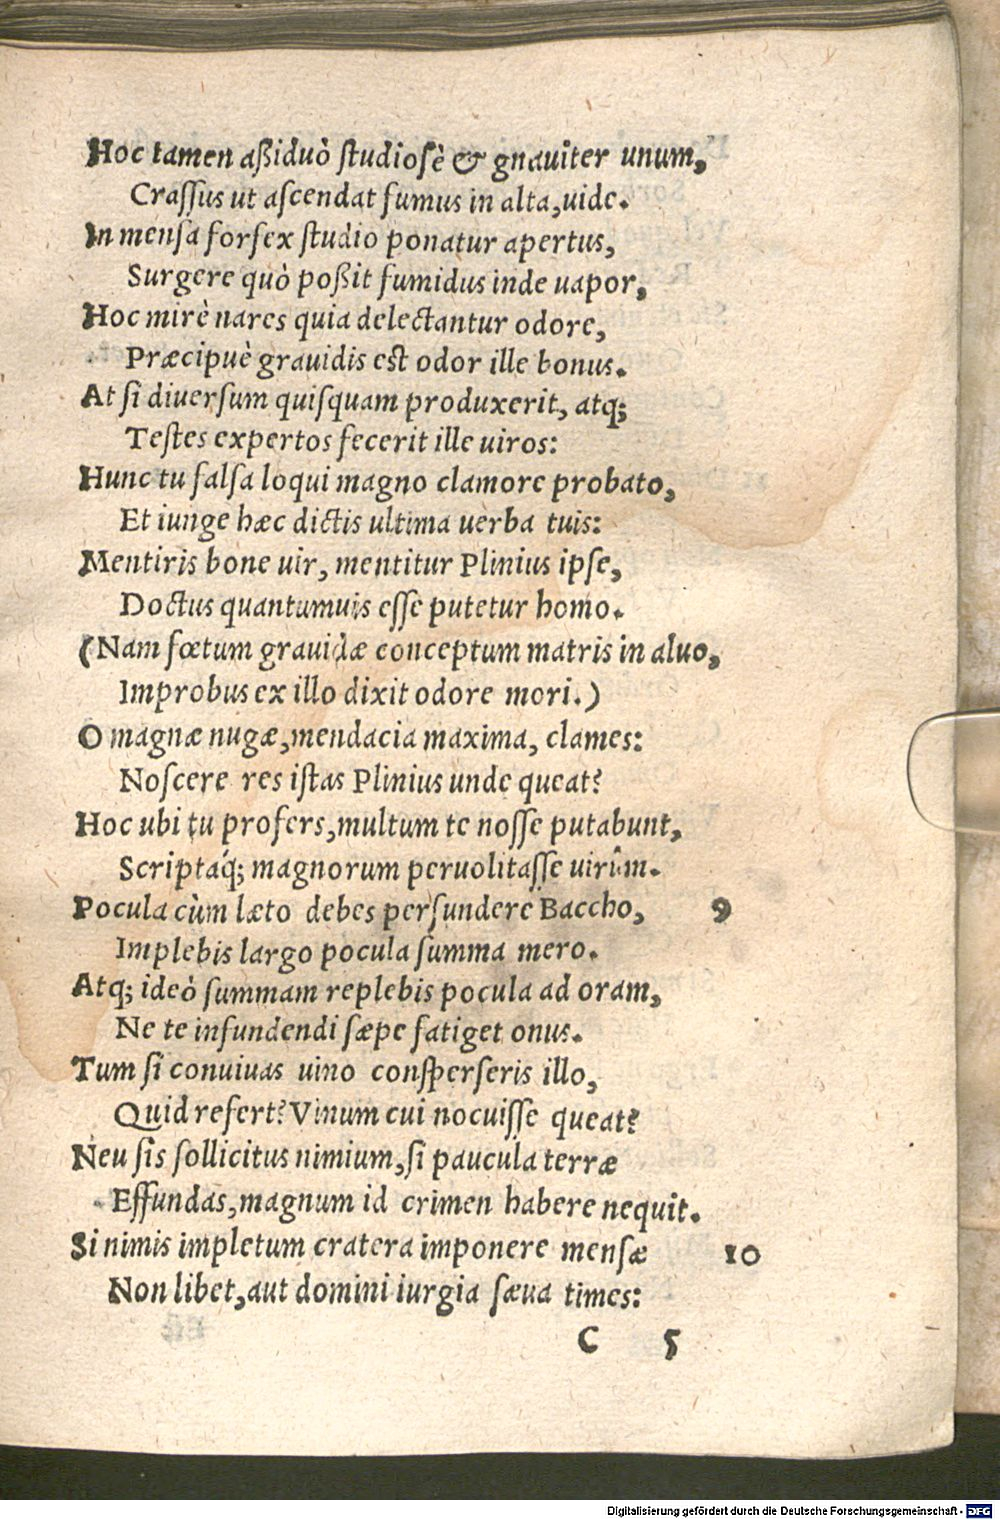 Hoc tamen aßiduò ſtudioſè & gnauiter unum,
Craſſus ut aſcendat fumus in alta, uide.
In menſa forfex ſtudio ponatur apertus,
Surgere quò poßit fumidus inde uapor,
Hoc mirè nares quia delectantur odore,
Præcipuè grauidis est odor ille bonus.
At ſi diuerſum quiſquam produxerit, atq;
Teſtes expertos fecerit ille uiros:
Hunc tu falſa loqui magno clamore probato,
Et iunge hæc dictis ultima uerba tuis:
Mentiris bone uir, mentitur Plinius ipſe,
Doctus quantumuis eſſe putetur homo.
(Nam fœtum grauidæ conceptum matris in aluo,
Improbus ex illo dixit odore mori.)
O magnæ nugæ, mendacia maxima, clames:
Noſcere res iſtas Plinius unde queat?
Hoc ubi tu profers, multum te noſſe putabunt,
Scriptaq́; magnorum peruolitaſſe uirûm.
Pocula cùm læto debes perfundere Baccho, 9
Implebis largo pocula ſumma mero.
Atq; ideò ſummam replebis pocula ad oram,
Ne te infundendi ſæpe fatiget onus.
Tum ſi conuiuas uino conſperſeris illo,
Quid refert? Vinum cui nocuiſſe queat?
Neu ſis ſollicitus nimium, ſi paucula terræ
Effundas, magnum id crimen habere nequit.
Si nimis impletum cratera imponere menſæ 10
Non libet, aut domini iurgia ſæua times:
C 5
Digitalisierung gefördert durch die Deutsche Forschungsgemeinschaft - DFG